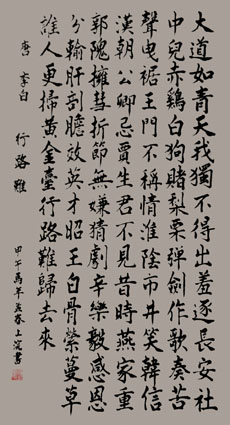 大道如青天我獨不得出羞逐長安社
中兒赤鷄白狗賭梨栗彈劍作歌奏苦
聲曳裾王門不稱情淮陰市井笑韓信
漢朝公卿忌賈生君不見昔時燕家重
郭隗擁彗折節無嫌猜劇辛樂毅感恩
分輸肝剖膽效英才昭王白骨縈蔓草
誰人更掃黃金臺行路難歸去來
唐 李白 行路難
甲午馬年孟春上浣書